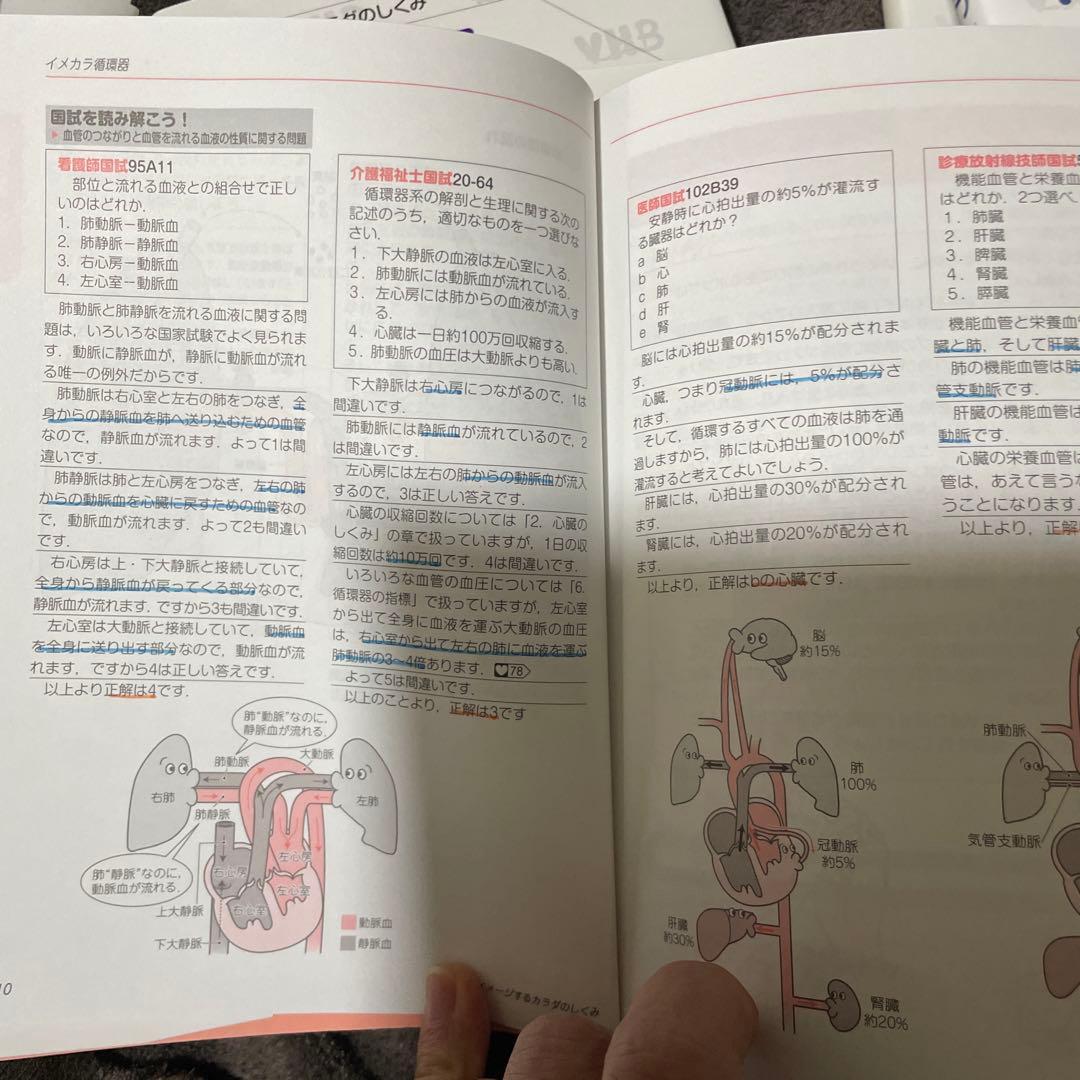 ダのしくみ
イメカラ循環器
国試を読み解こう！
▶ 血管のつながりと血管を流れる血液の性質に関する問題
看護師国試95A11
部位と流れる血液との組合せで正し
いのはどれか．
1．肺動脈－動脈血
2．肺静脈－静脈血
3．右心房－動脈血
4．左心室－動脈血
肺動脈と肺静脈を流れる血液に関する問
題は，いろいろな国家試験でよく見られま
す．動脈に静脈血が，静脈に動脈血が流れ
る唯一の例外だからです．
肺動脈は右心室と左右の肺をつなぎ，全
身からの静脈血を肺へ送り込むための血管
なので，静脈血が流れます．よって1は間
違いです．
肺静脈は肺と左心房をつなぎ，左右の肺
からの動脈血を心臓に戻すための血管なの
で，動脈血が流れます．よって2も間違い
です．
右心房は上・下大静脈と接続していて，
全身から静脈血が戻ってくる部分なので，
静脈血が流れます．ですから3も間違いです．
左心室は大動脈と接続していて，動脈血
を全身に送り出す部分なので，動脈血が流
れます，ですから4は正しい答えです．
以上より正解は4です．
介護福祉士国試20-64
循環器系の解剖と生理に関する次の
記述のうち，適切なものを一つ選びな
さい．
1．下大静脈の血液は左心室に入る．
2．肺動脈には動脈血が流れている．
3．左心房には肺からの血液が流入す
る．
4．心臓は一日約100万回収縮する．
5．肺動脈の血圧は大動脈よりも高い．
下大静脈は右心房につながるので，1は
間違いです．
肺動脈には静脈血が流れているので，2
は間違いです．
左心房には左右の肺からの動脈血が流入
するので，3は正しい答えです．
心臓の収縮回数については「2．心臓の
しくみ」の章で扱っていますが，1日の収
縮回数は約10万回です．4は間違いです．
いろいろな血管の血圧については「6.
循環器の指標」で扱っていますが，左心室
から出て全身に血液を運ぶ大動脈の血圧
は，右心室から出て左右の肺に血液を運ぶ
肺動脈の3～4倍あります．♥78
よって5は間違いです．
以上のことより，正解は3です
肺“動脈”なのに，
静脈血が流れる．
肺動脈
大動脈
右肺
左肺
肺静脈
肺“静脈”なのに，
動脈血が流れる．
左心房
右心房
左心室
右心室
上大静脈
下大静脈
動脈血
静脈血
10
イメージするカラダのしくみ
医師国試102B39
安静時に心拍出量の約5％が灌流す
る臓器はどれか？
a 脳
b 心
c 肺
d 肝
e 腎
脳には心拍出量の約15％が配分されま
す．
心臓，つまり冠動脈には，5％が配分さ
れます．
そして，循環するすべての血液は肺を通
過しますから，肺には心拍出量の100％が
灌流すると考えてよいでしょう．
肝臓には，心拍出量の30％が配分され
ます．
腎臓には，心拍出量の20％が配分され
ます．
以上より，正解はbの心臓です．
脳
約15%
肺
100%
冠動脈
約5%
肝臓
約30%
腎臓
約20%
診療放射線技師国試
機能血管と栄養血
はどれか．2つ選べ
1．肺臓
2．肝臓
3．脾臓
4．腎臓
5．膵臓
機能血管と栄養血
臓と肺，そして肝臓
肺の機能血管は肺
管支動脈です．
肝臓の機能血管は
動脈です．
心臓の栄養血管は
管は，あえて言うな
うことになります．
以上より，正解
肺動脈
気管支動脈